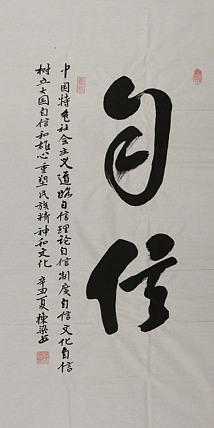 自信
中国特色社会主义道路自信理论自信制度自信文化自信
树立大国自信和雄心重塑民族精神和文化 辛丑夏